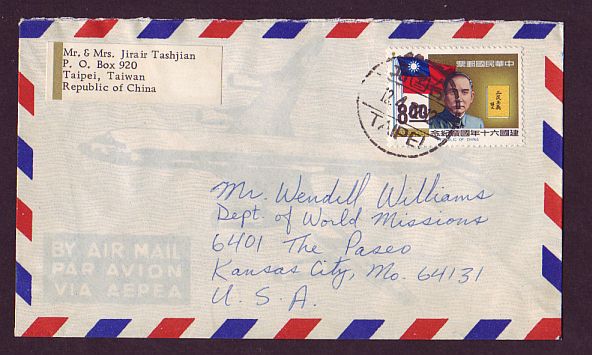 Mr. & Mrs. Jirair Tashjian
P. O. Box 920
Taipei, Taiwan
Republic of China
中華民國郵票
三民主義
8.00
建國六十年國慶紀念
TAIPEI
Mr. Wendell Williams
Dept. of World Missions
6401 The Paseo
Kansas City, Mo. 64131
U. S. A.
BY AIR MAIL
PAR AVION
VIA AEREA